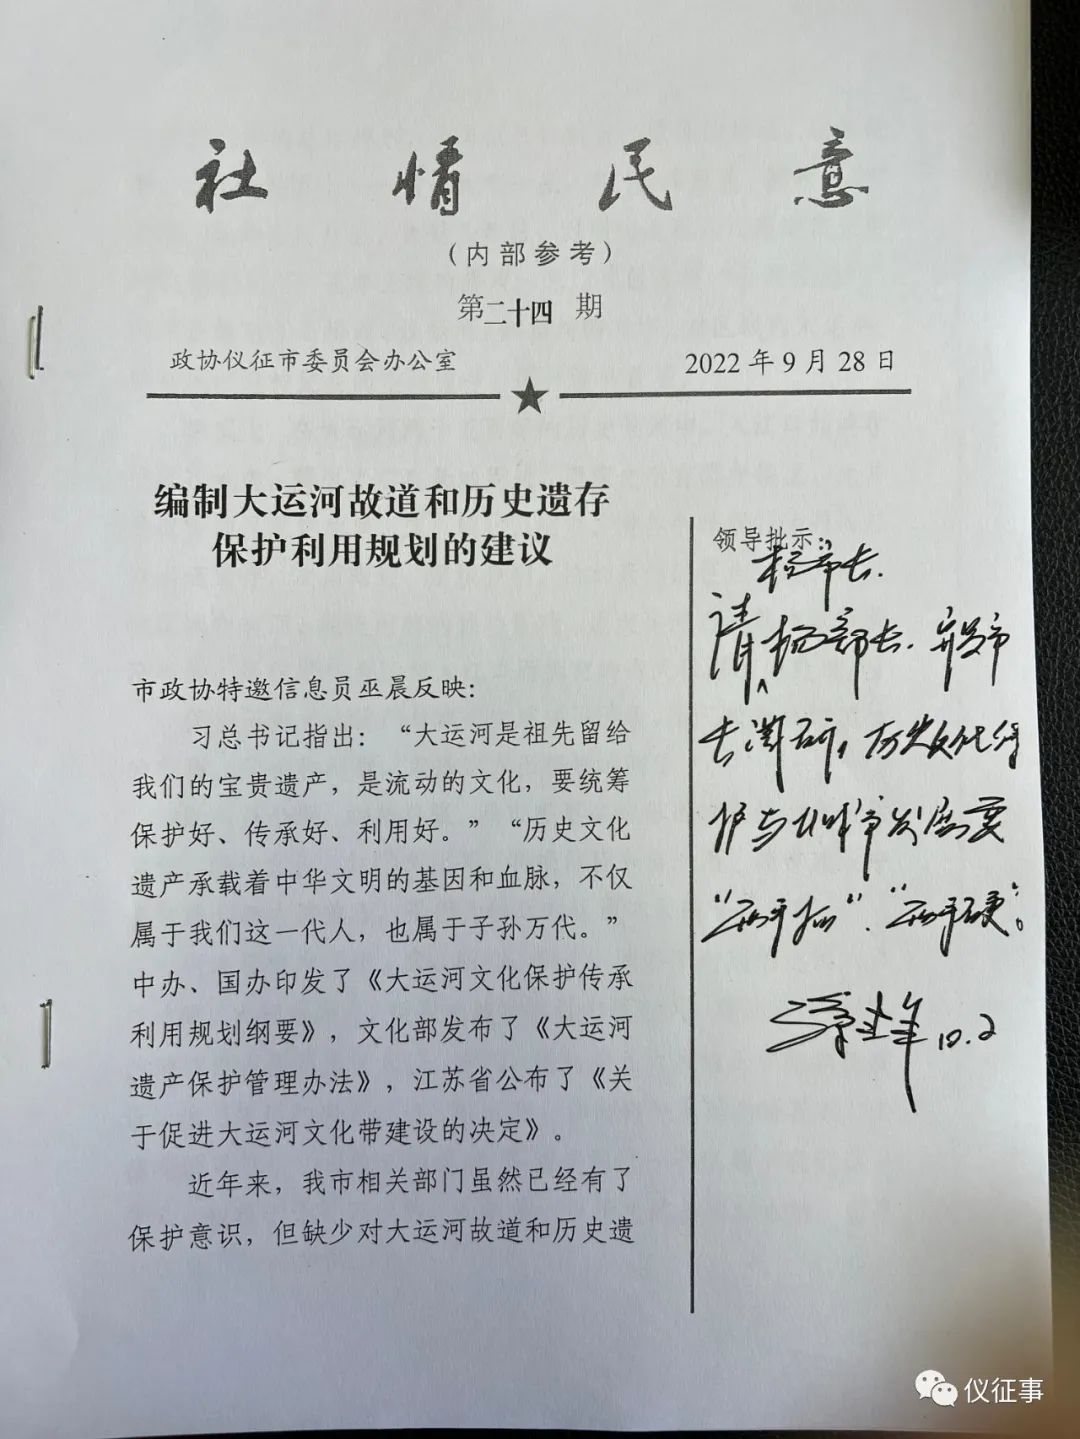 社情民意
（内部参考）
第二十四期
政协仪征市委员会办公室 2022年9月28日
编制大运河故道和历史遗存
保护利用规划的建议
市政协特邀信息员巫晨反映：
习总书记指出：“大运河是祖先留给
我们的宝贵遗产，是流动的文化，要统筹
保护好、传承好、利用好。”“历史文化
遗产承载着中华文明的基因和血脉，不仅
属于我们这一代人，也属于子孙万代。”
中办、国办印发了《大运河文化保护传承
利用规划纲要》，文化部发布了《大运河
遗产保护管理办法》，江苏省公布了《关
于促进大运河文化带建设的决定》。
近年来，我市相关部门虽然已经有了
保护意识，但缺少对大运河故道和历史遗
领导批示：
请杨部长、市
长调研，历史文化保
护与城市发展要
“两手抓”、“两手硬”。
10.2
仪征事